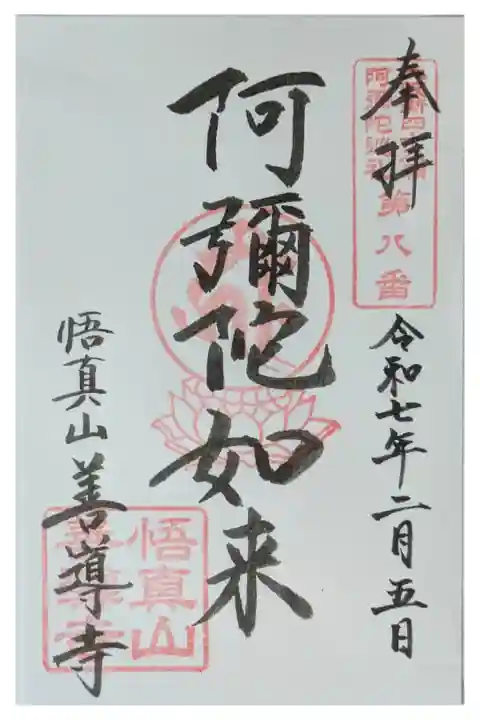 奉拝
第八番
令和七年二月五日
阿彌陀如来
悟真山 善導寺
悟真山
善導寺